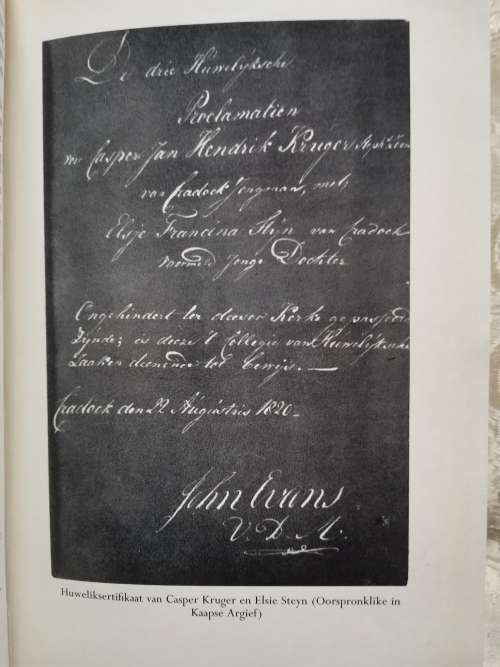 De drie Huwelijksche
Proclamatien
van Casper Jan Hendrik Kruger
van Cradock Jongman, met
Elsje Francina Stijn van Cradock
voormeld Jonge Dochter
Ongehindert ter deeser Kerke gepasseerd
Zijnde; is deeze 't Collegie van Huwelijksche
Zaaken deenende tot bewijs.—
Cradock den 22 Augustris 1820-
John Evans
V. D. M.
Huweliksertifikaat van Casper Kruger en Elsie Steyn (Oorspronklike in
Kaapse Argief)